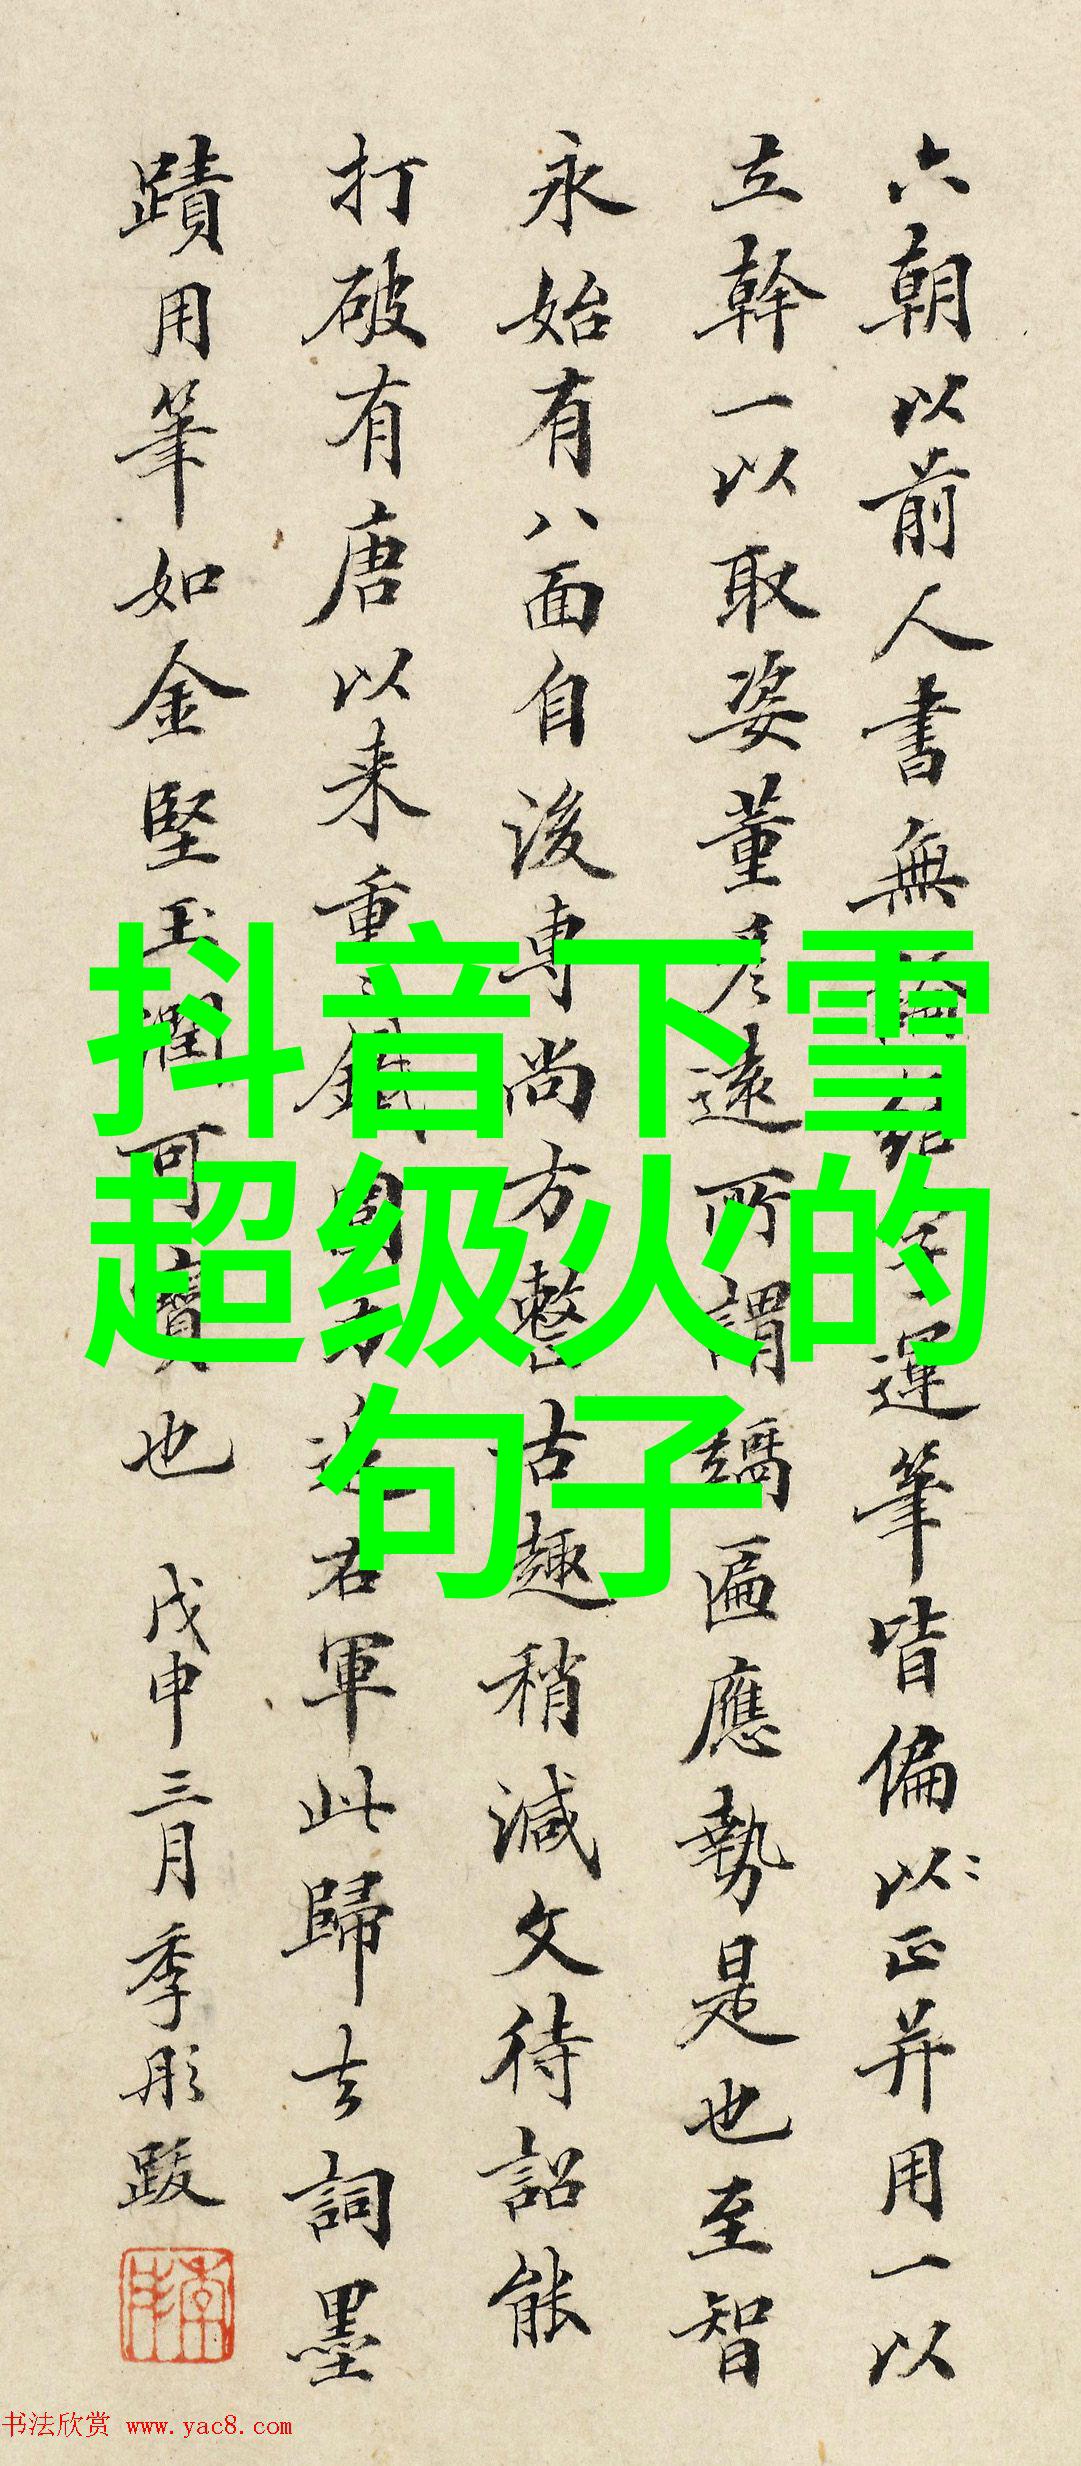 抖音下雪
超级火的
句子
六朝以前人書無論結字運筆皆偏以正并用一以
立幹一以取姿董彦遠所謂媀匾應勢是也至智
永始有八面自後専尚方整古趣稍減文待詔能
打破有唐以来重鐵圍而返右軍此歸去詞墨
蹟用筆如金堅玉潤可寶也 戊申三月季彤跋
书法欣赏 www.yac8.com